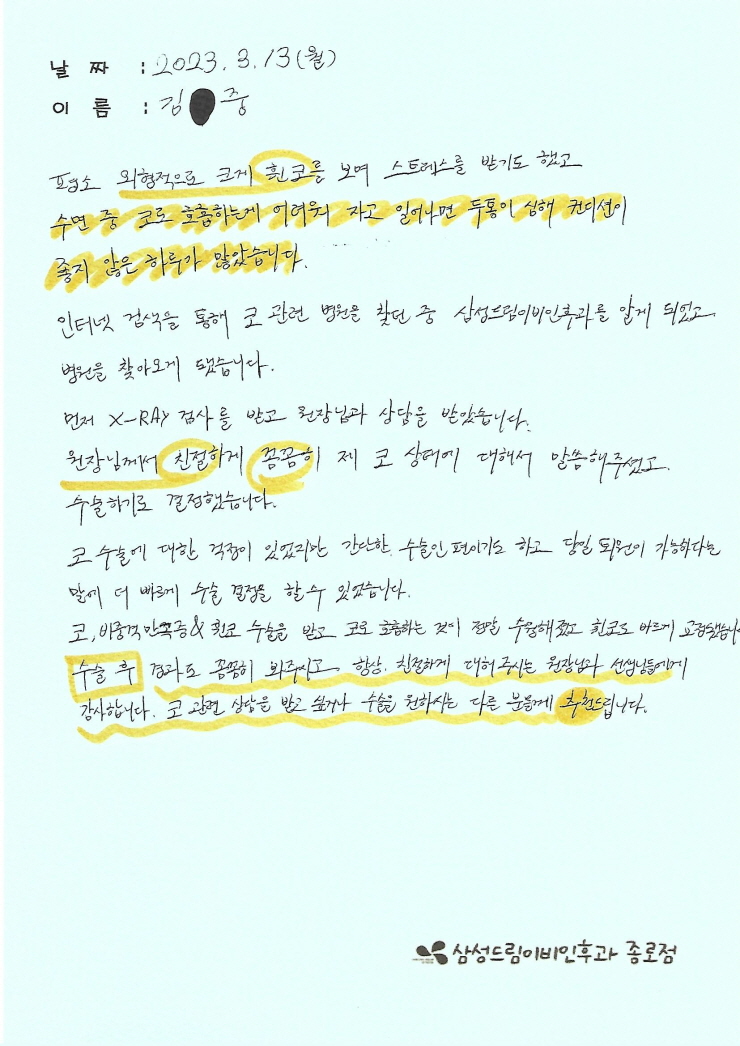 날 짜 : 2023. 3. 13 (월)
이 름 : 김 중
평소 외형적으로 크게 휜 코를 보며 스트레스를 받기도 했고
수면 중 코로 호흡하는게 어려워 자고 일어나면 두통이 심해 컨디션이
좋지 않은 하루가 많았습니다.
인터넷 검색을 통해 코 관련 병원을 찾던 중 삼성드림이비인후과를 알게 되었고
병원을 찾아오게 됐습니다.
먼저 X-RAY 검사를 받고 원장님과 상담을 받았습니다.
원장님께서 친절하게 꼼꼼히 제 코 상태에 대해서 말씀해주셨고
수술하기로 결정했습니다.
코 수술에 대한 걱정이 있었지만 간단한 수술인 편이기도 하고 당일 퇴원이 가능하다는
말에 더 빠르게 수술 결정을 할 수 있었습니다.
코, 비중격만곡증 & 휜코 수술을 받고 코로 호흡하는 것이 정말 수월해졌고 휜코도 바르게 교정됐습니
수술 후 경과도 꼼꼼히 봐주시고 항상 친절하게 대해주시는 원장님과 선생님들에게
감사합니다. 코 관련 상담을 받고 싶거나 수술을 원하시는 다른 분들께 추천드립니다.
삼성드림이비인후과 종로점